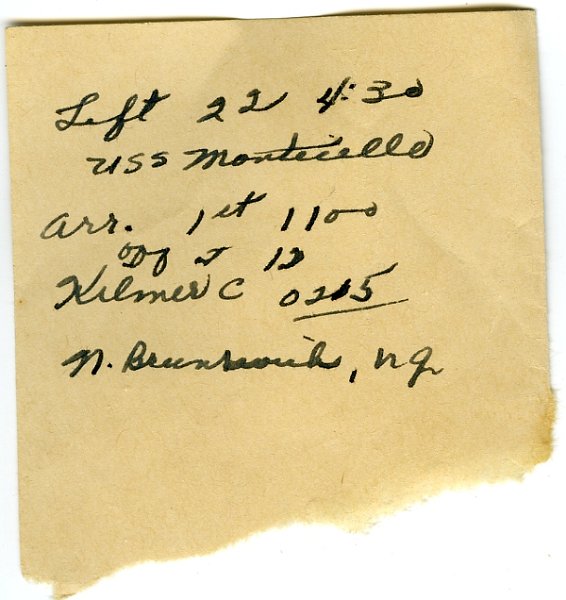 Left 22 4:30
USS Monticello
Arr. 1st 1100
12
Kilmer C 0215
N. Brunswick, NJ